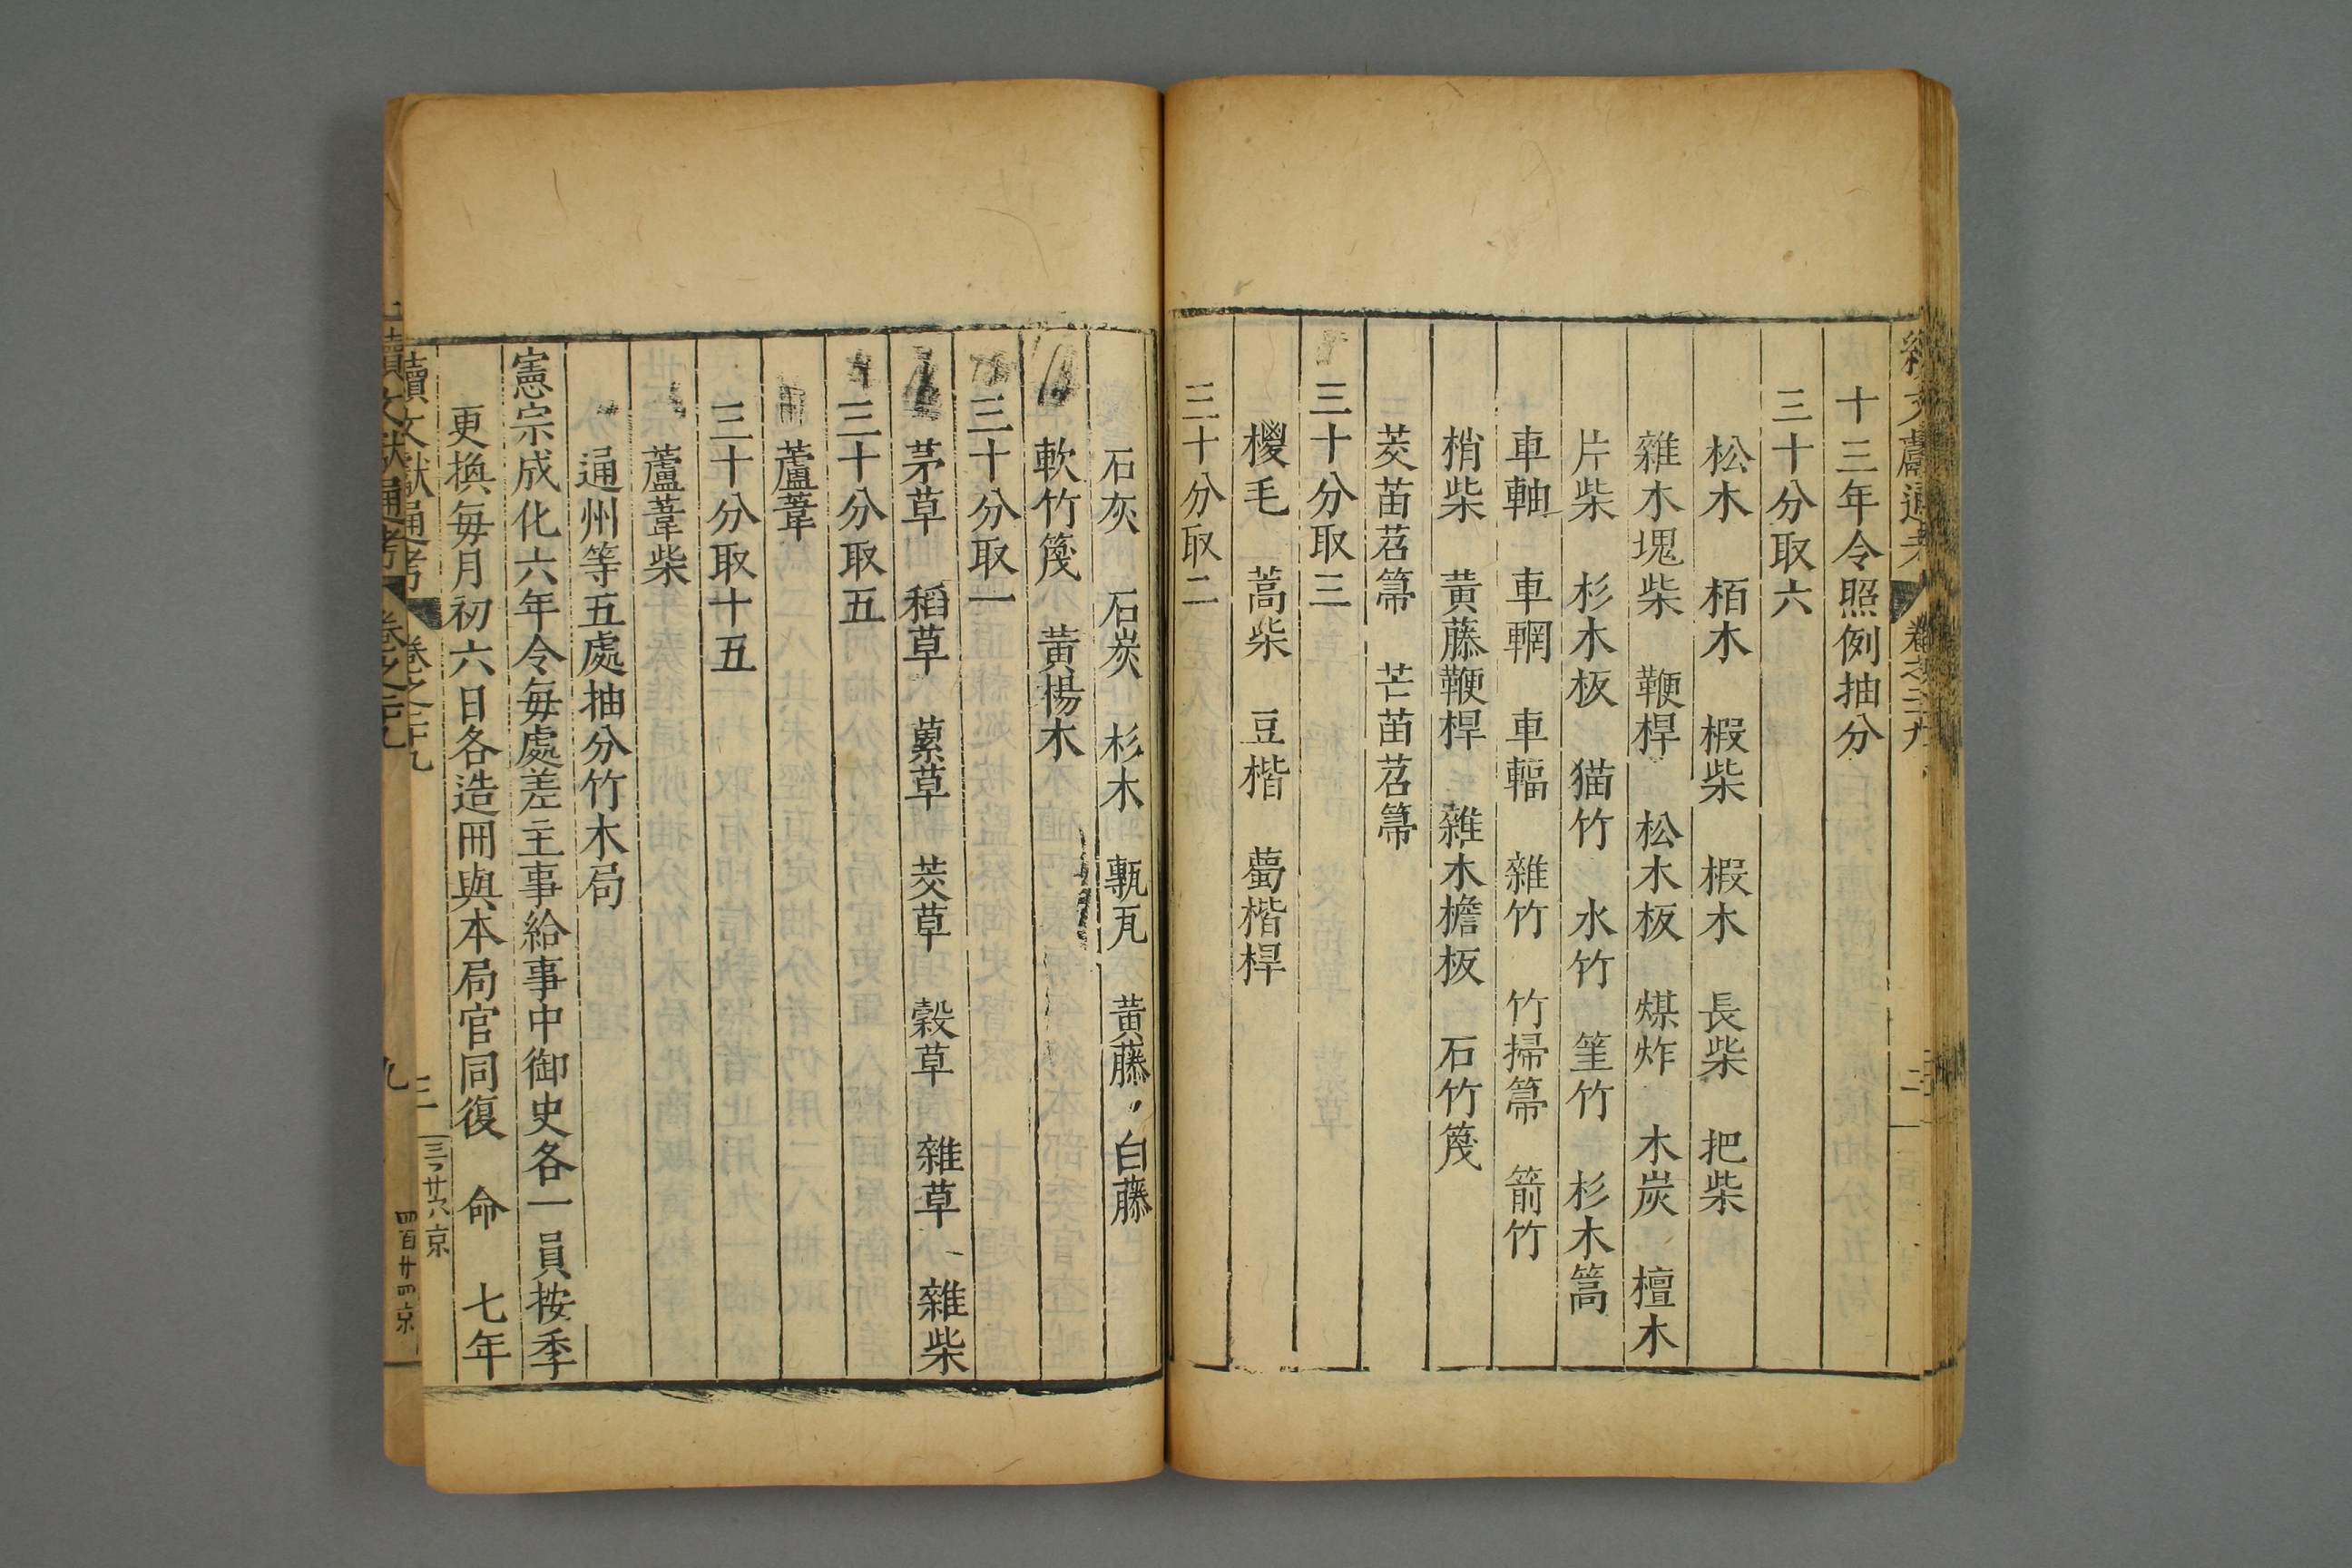 十三年令照例抽分
三十分取六
松木 栢木 椵柴 椵木 長柴 把柴
雜木塊柴 鞭桿 松木板 煤炸 木炭 檀木
片柴 杉木板 猫竹 水竹 篁竹 杉木篙
車軸 車輞 車輻 雜竹 竹掃箒 箭竹
梢柴 黄藤鞭桿 雜木檐板 石竹篾
茭苖苕箒 芒苖苕箒
三十分取三
椶毛 蒿柴 豆楷 蔔楷桿
三十分取二
石灰 石炭 杉木 甎瓦 黄藤 白藤
軟竹篾 黄楊木
三十分取一
茅草 稻草 蔂草 茭草 穀草 雜草 雜柴
三十分取五
蘆葦
三十分取十五
蘆葦柴
通州等五處抽分竹木局
憲宗成化六年令毎處差主事給事中御史各一員按季
更換毎月初六日各造冊與本局官同復 命 七年
續文獻通考 卷之二十九 三
四百廿四京